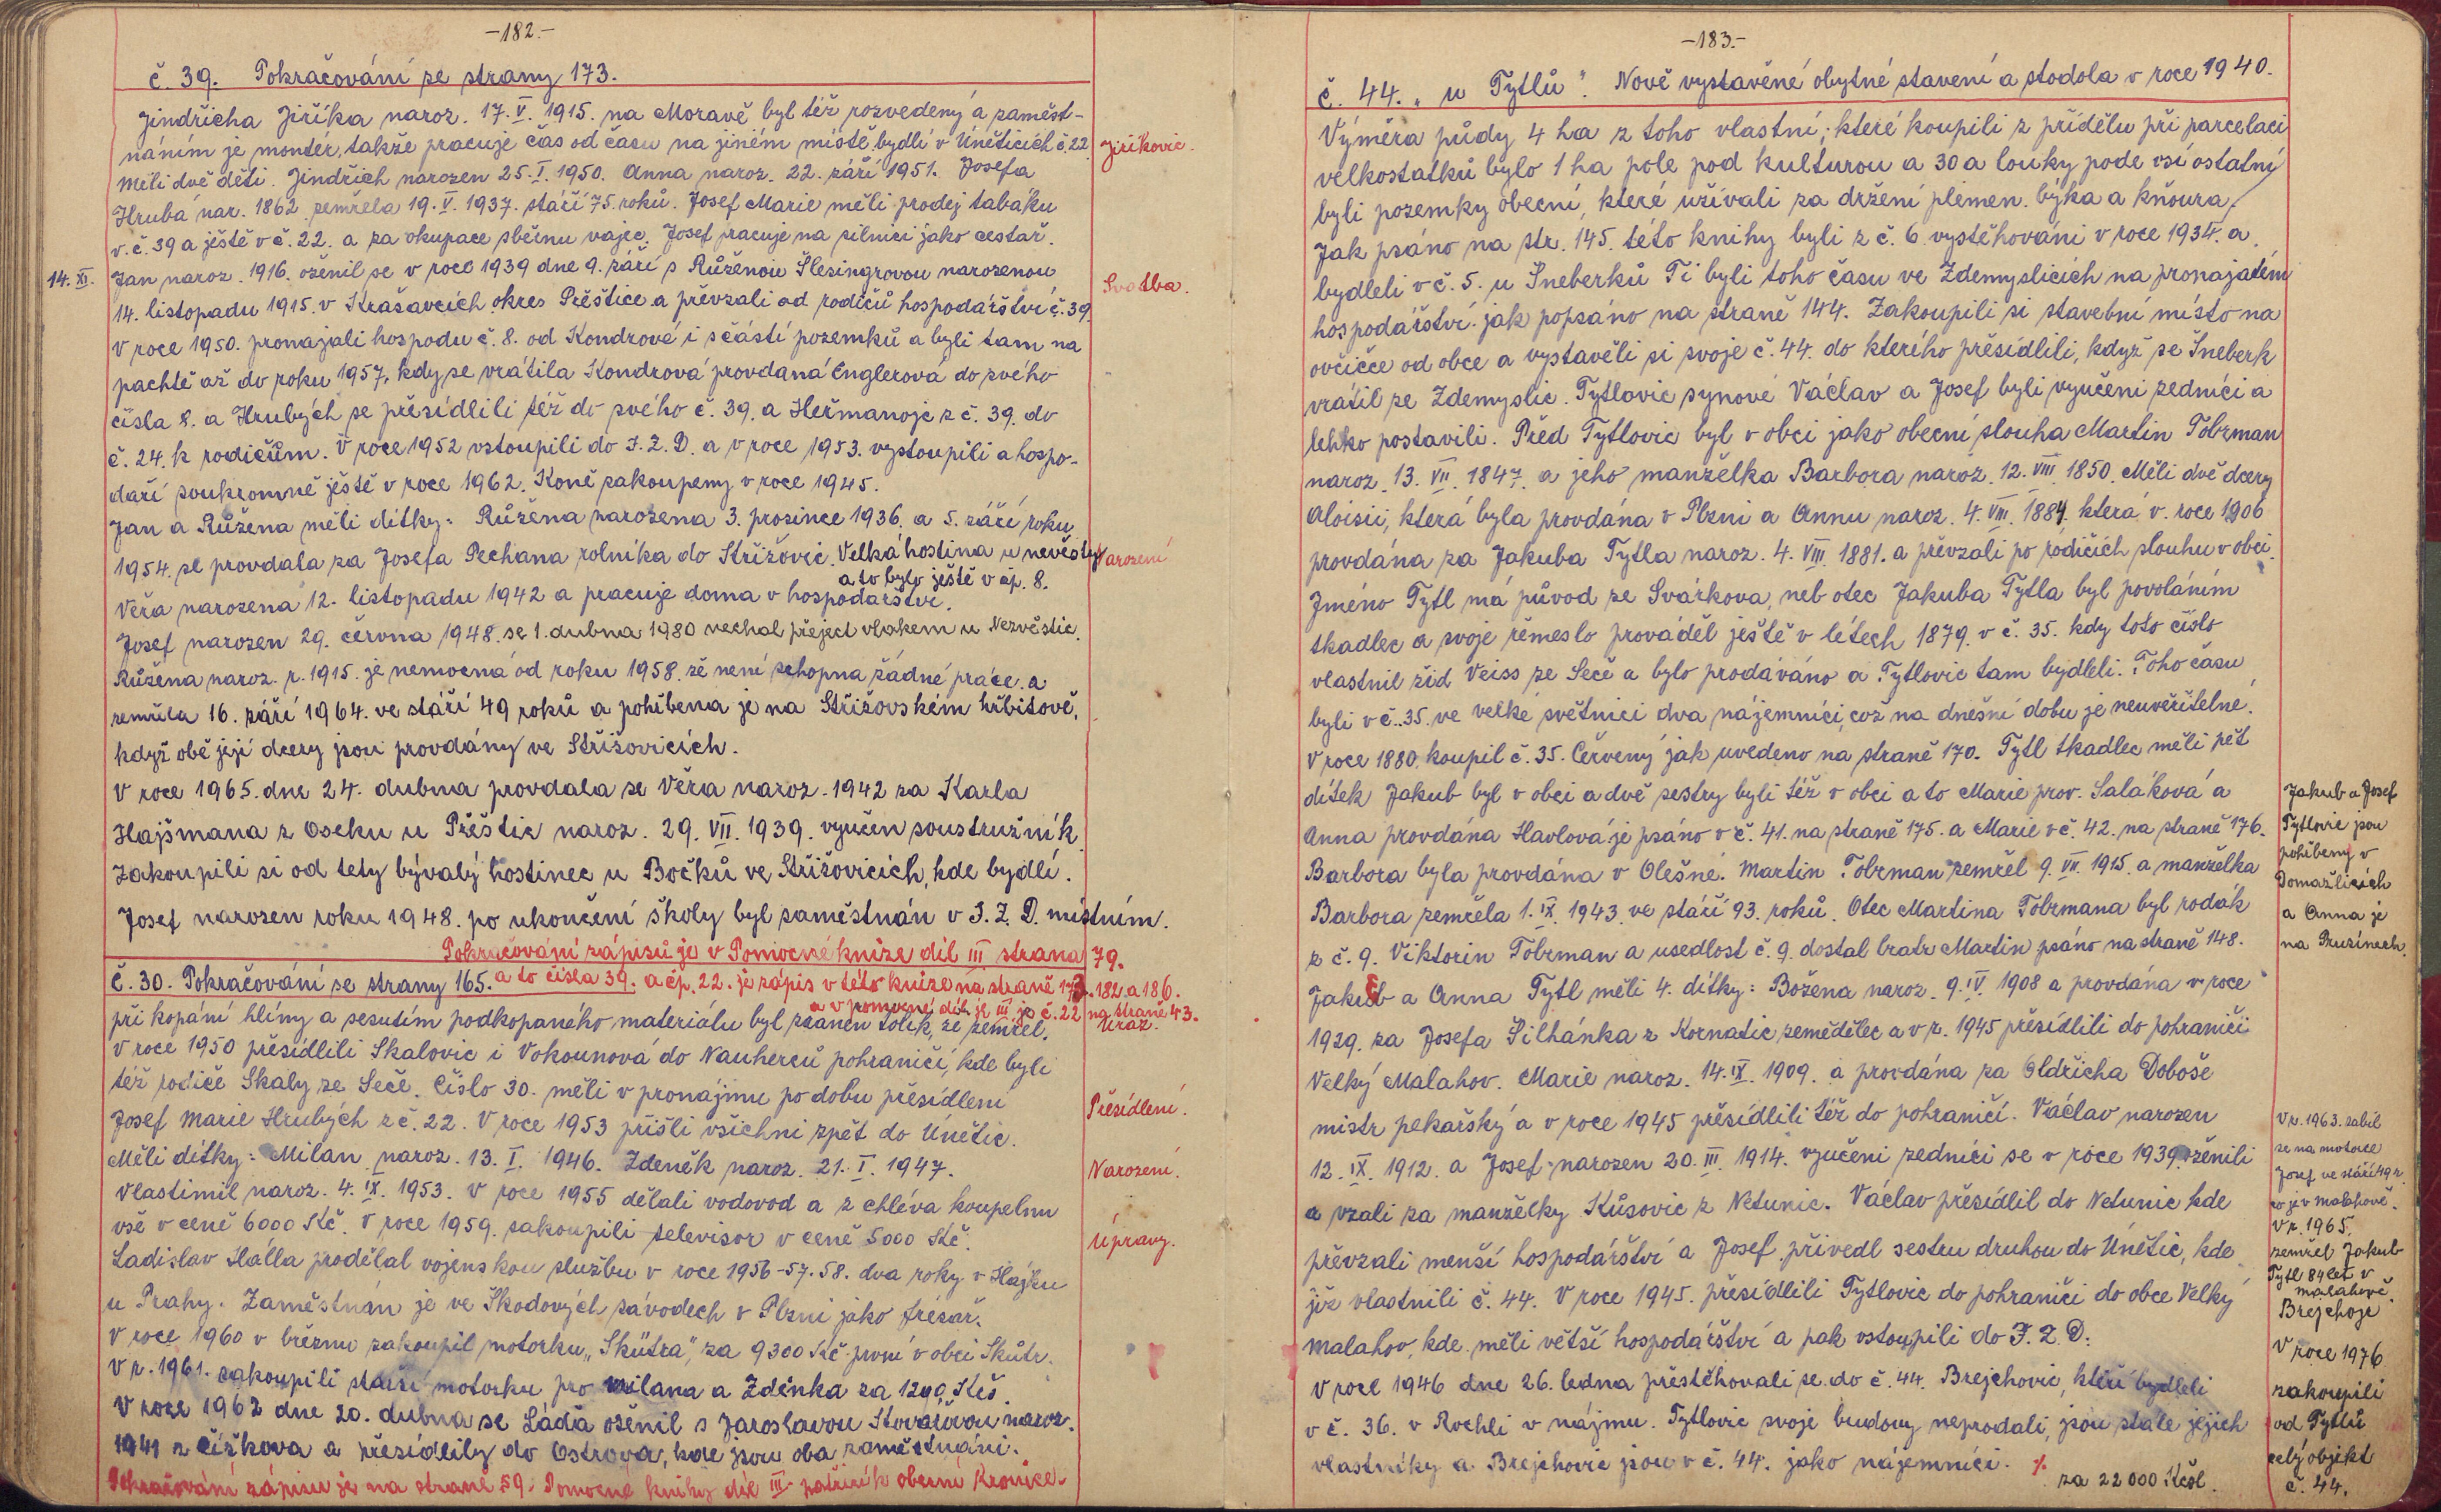 -182.-
č. 39. Pokračování ze strany 173.
Jindřicha Jiříka naroz. 17. V. 1915. na Moravě byl též rozvedený a zaměst-
náním je montér, takže pracuje čas od času na jiném místě bydlí v Úněticích č. 22
Jiříkovic.
Měli dvě děti. Jindřich narozen 25. I. 1950. Anna naroz. 22. září 1951. Josefa
Hrubá nar. 1862 zemřela 19. V. 1937. stáří 75 roků. Josef Marie měli prodej tabáku
v.č. 39 a ještě v č. 22. a za okupace sběrnu vajec. Josef pracuje na silnici jako cestář.
14. XI.
Jan naroz. 1916. oženil se v roce 1939 dne 9. září s Růženou Šlesingrovou narozenou
Svatba.
14. listopadu 1915. v Krašavcích okres Přeštice a převzali od rodičů hospodářství č. 39
V roce 1950. pronajali hospodu č. 8. od Kondrové i s částí pozemků a byli tam na
pachtě až do roku 1957, kdy se vrátila Kondrová provdaná Englerová do svého
čísla 8. a Hrubých se přesídlili též do svého č. 39. a Heřmanojc z č. 39. do
č. 24. k rodičům. V roce 1952 vstoupili do J. Z. D. a v roce 1953. vystoupili a hospo-
daří soukromně ještě v roce 1962. Koně zakoupeny v roce 1945.
Jan a Růžena měli dítky: Růžena narozena 3. prosince 1936. a 5. září roku
1954. se provdala za Josefa Pechana rolníka do Střížovic. Velká hostina u nevěsty
Narození
a to bylo ještě v čp. 8.
Věra narozena 12. listopadu 1942 a pracuje doma v hospodářství.
Josef narozen 29. června 1948. se 1. dubna 1980 nechal přeject vlakem u Nezvěstic.
Růžena naroz. r. 1915. je nemocná od roku 1958. že není schopna žádné práce. a
zemřela 16. září 1964. ve stáří 49 roků a pohřbena je na Střížovském hřbitově,
když obě její dcery jsou provdány ve Střížovicích.
V roce 1965. dne 24. dubna provdala se Věra naroz. 1942 za Karla
Hajšmana z Oseku u Přeštic naroz. 29. VII. 1939. vyučen soustružník.
Zakoupili si od tety bývalý hostinec u Bočků ve Střížovicích, kde bydlí.
Josef narozen roku 1948. po ukončení školy byl zaměstnán v J. Z. D. místním.
Pokračování zápisů je v Pomocné knize díl III strana 79.
č. 30. Pokračování se strany 165. a to čísla 39. a čp. 22. je zápis v této knize na straně 173. 182. a 186.
a v pomocné díl je III je č. 22 na straně 43.
při kopání hlíny a sesutím podkopaného materiálu byl zraněn tolik, že zemřel.
Úraz.
V roce 1950 přesídlili Skalovic i Vokounová do Nauherců pohraničí, kde byli
též rodiče Skaly ze Seče. Číslo 30. měli v pronájmu po dobu přesídlení
Přesídlení.
Josef Marie Hrubých z č. 22. V roce 1953 přišli všichni zpět do Únětic.
Měli dítky: Milan naroz. 13. I. 1946. Zdeněk naroz. 21. I. 1947.
Narození.
Vlastimil naroz. 4. IX. 1953. V roce 1955 dělali vodovod a z chléva koupelnu
vše v ceně 6000 Kč. V roce 1959. zakoupili televisor v ceně 5000 Kč.
Úpravy.
Ladislav Halla prodělal vojenskou službu v roce 1956-57. 58. dva roky v Hájku
u Prahy. Zaměstnám je ve Škodových závodech v Plzni jako frezař.
V roce 1960 v březnu zakoupil motorku „Skůtra", za 9300 Kč první v obci Skůtr.
V r. 1961. zakoupili starší motorku pro Milana a Zdenka za 1200. Kčs.
V roce 1962 dne 20. dubna se Láďa oženil s Jaroslavou Kovářovou naroz.
1941 z Čížkova a přesídlily do Ostrova, kde jsou oba zaměstnáni.
Pokračování zápisu je na straně 59. Pomocné knihy díl III patřící k obecní Kronice.
-183.-
č. 44. „u Tytlů". Nově vystavěné obytné stavení a stodola v roce 1940.
Výměra půdy 4 ha z toho vlastní, které koupili z přídělu při parcelaci
velkostatků bylo 1 ha pole pod kulturou a 30 a louky pode vsí ostatní
byli pozemky obecní, které užívali za držení plemen. býka a kňoura.
Jak psáno na str. 145. této knihy byli z č. 6 vystěhováni v roce 1934. a
bydleli v č. 5. u Šneberků Ti byli toho času ve Zdemyslicích na pronajatém
hospodářství. jak popsáno na straně 144. Zakoupili si stavební místo na
ovčičce od obce a vystavěli si svoje č. 44. do kterého přesídlili, když se Šneberk
vrátil ze Zdemyslic. Tytlovic synové Václav a Josef byli vyučeni zedníci a
lehko postavili. Před Tytlovic byl v obci jako obecní slouha Martin Tobrman
naroz. 13. VII. 1847. a jeho manželka Barbora naroz. 12. VIII 1850. Měli dvě dcery
Aloisii, která byla provdána v Plzni a Annu naroz. 4. VIII. 1884. která v. roce 1906
provdána za Jakuba Tytla naroz. 4. VIII. 1881. a převzali po rodičích slouhu v obci.
Jméno Tytl má původ ze Svárkova, neb otec Jakuba Tytla byl povoláním
tkadlec a svoje řemeslo prováděl ještě v létech 1879. v č. 35. kdy toto číslo
vlastnil žid Veiss ze Seče a bylo prodáváno a Tytlovic tam bydleli. Toho času
byli v č. 35. ve velké světnici dva nájemníci, což na dnešní dobu je neuvěřitelné.
V roce 1880. koupil č. 35. Červený jak uvedeno na straně 170. Tytl tkadlec měli pět
dítek Jakub byl v obci a dvě sestry byli též v obci a to Marie prov. Saláková a
Anna provdána Havlová je psáno v č. 41. na straně 175. a Marie v č. 42. na straně 176.
Barbora byla provdána v Olešné. Martin Tobrman zemřel 9. VII. 1915. a manželka
Barbora zemřela 1. IX. 1943. ve stáří 93. roků. Otec Martina Tobrmana byl rodák
z č. 9. Viktorin Tobrman a usedlost č. 9. dostal bratr Martin psáno na straně 148.
Jakub a Josef
Tytlovic jsou
pohřbeny v
Domažlicích
a Anna je
na Pruzinech.
Jakub a Anna Tytl měli 4. dítky: Božena naroz. 9. IV. 1908 a provdána v roce
1929. za Josefa Silhánka z Kornatic zemědělec a v r. 1945 přesídlili do pohraničí
Velký Malahov. Marie naroz. 14. IX. 1909. a provdána za Oldřicha Doboše
mistr pekařský a v roce 1945 přesídlili též do pohraničí. Václav narozen
12. IX. 1912. a Josef narozen 20. III. 1914. vyučeni zedníci se v roce 1939. ženili
a vzali za manželky Kůsovic z Netunic. Václav přesídlil do Netunic kde
převzali menší hospodářství a Josef. přivedl sestru druhou do Únětic, kde
již vlastnili č. 44. V roce 1945. přesídlili Tytlovic do pohraničí do obce Velký
Malahov, kde měli větší hospodářství a pak vstoupili do J. Z. D.
V roce 1946 dne 26. ledna přestěhovali se do č. 44. Brejchovic, kteří bydleli
v č. 36. v Rochli v nájmu. Tytlovic svoje budovy neprodali, jsou stále jejich
vlastníky a Brejchovic jsou v č. 44. jako nájemníci. ⁒
V r. 1963. zabil
se na motorce
Josef ve stáří 49 r.
co je v Malahově.
V r. 1965.
zemřel Jakub
Tytl 84 let v
Malahově.
Brejchojc
V roce 1976
zakoupili
od Tytlů
celý objekt
č. 44.
za 22 000 Kčsl.